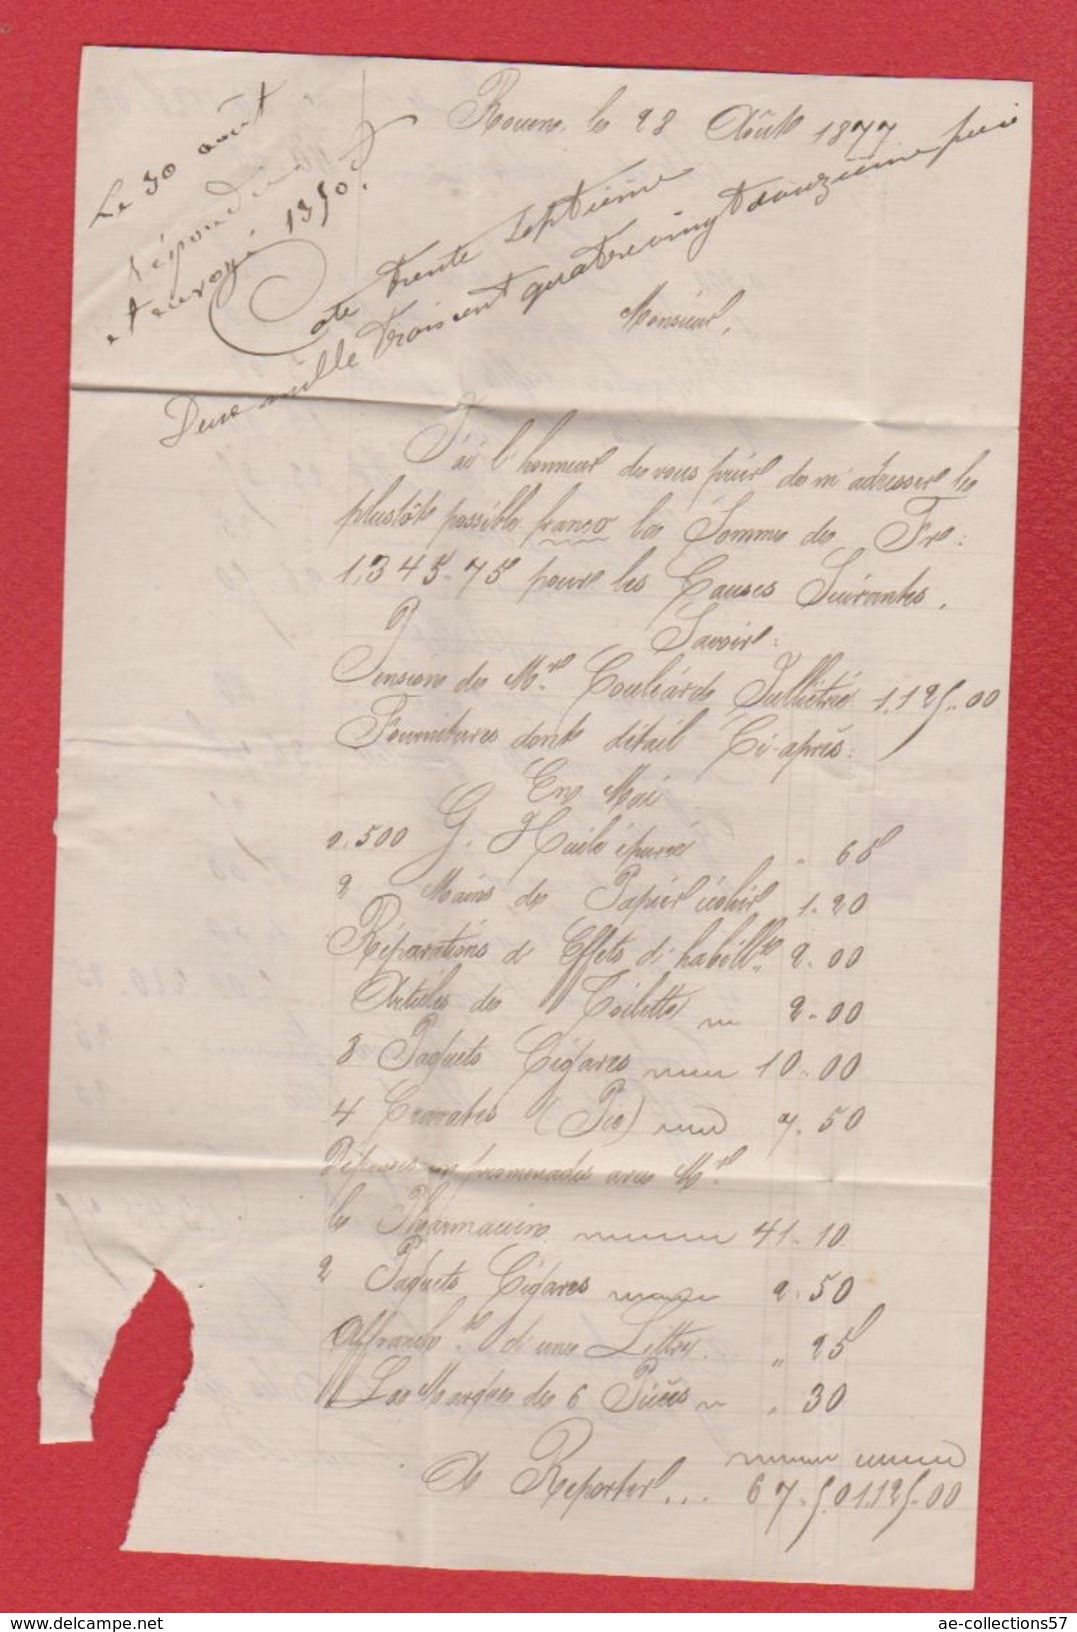 Rouen, le 28 Août 1877
Le 30 août
répondu
et envoyé 1350 f.
Cote trente septième
Deux mille trois cent quatre vingt douzième pièce
Monsieur,
J'ai l'honneur de vous prier de m'adresser le
plustôt possible franco la Somme de Fr:
1,345.75 pour les Causes Suivantes.
Savoir:
Pension de Mr. Couliarde Jullietrie 1.125.00
Fournitures dont détail Ci-après:
En Mai
0.500 G. Huile épurée " 65
2 Mains de Papier écolier 1.20
Réparations d'Effets d'habillts 2.00
Articles de Toilette 2.00
8 Paquets Cigares 10.00
4 Cravates (Pce) 7.50
Dépenses en promenades avec Mr.
le Pharmacien 41.10
2 Paquets Cigares 2.50
Affrancht. d'une Lettre. " 25
La Marque de 6 Pièces " 30
A Reporter... 67.50 1.125.00
www.delcampe.net
ae-collections57